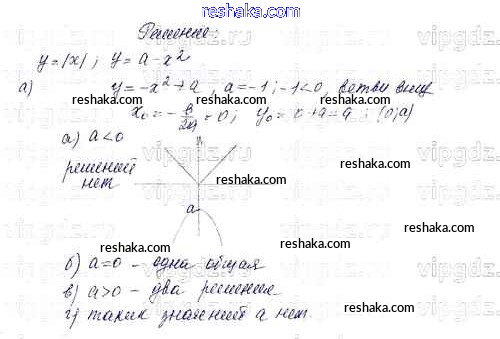 Решение:
y=|x|; y=a-x²
а) y=-x²+a, a=-1; -1<0, ветви вниз
x₀=-в/2a=0; y₀=0+a=a; (0;a)
а) a<0
решений
нет
a
б) a=0 - одна общая
в) a>0 - два решения
г) таких значений a нет.
reshaka.com
reshaka.com
reshaka.com
reshaka.com
reshaka.com
reshaka.com
reshaka.com
reshaka.com
reshaka.com